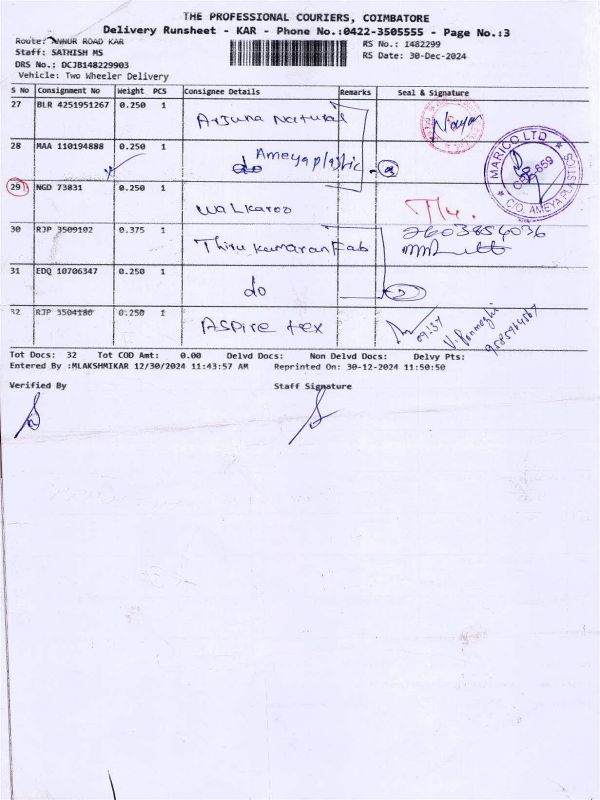 THE PROFESSIONAL COURIERS, COIMBATORE
Delivery Runsheet - KAR - Phone No.:0422-3505555 - Page No.:3
Route: ANNUR ROAD KAR
RS No.: 1482299
Staff: SATHISH MS
RS Date: 30-Dec-2024
DRS No.: DCJB148229903
Vehicle: Two Wheeler Delivery
S No Consignment No Weight PCS Consignee Details Remarks Seal & Signature
27 BLR 4251951267 0.250 1 Arjuna Natural
28 MAA 110194888 0.250 1 do Ameya plastic
MARICO LTD
C/O. AMEYA PLASTICS
29 NGD 73831 0.250 1 walkaroo
30 RJP 3509102 0.375 1 Thiru kumaran Fab
2603854036
31 EDQ 10706347 0.250 1 do 2
32 RJP 3504180 0.250 1 Aspire tex 09:37
Tot Docs: 32 Tot COD Amt: 0.00 Delvd Docs: Non Delvd Docs: Delvy Pts:
Entered By :MLAKSHMIKAR 12/30/2024 11:43:57 AM Reprinted On: 30-12-2024 11:50:50
Verified By Staff Signature